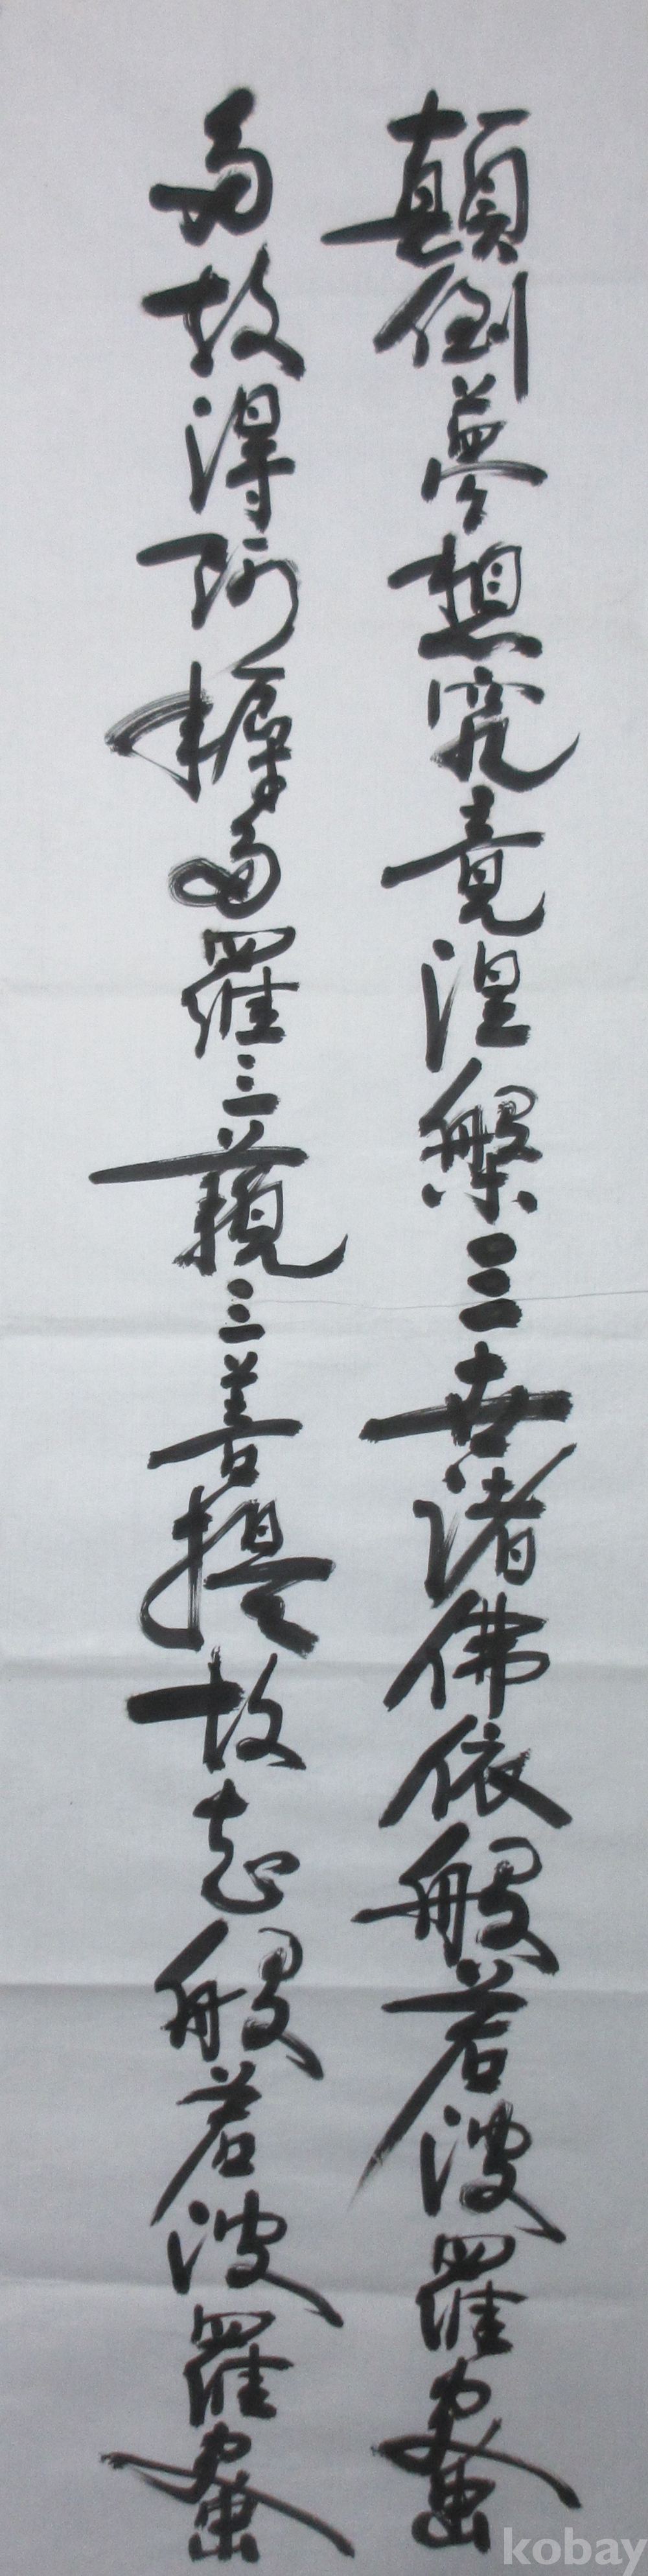 顛倒夢想究竟涅槃三世諸佛依般若波羅蜜
多故得阿耨多羅三藐三菩提故知般若波羅蜜
kobay